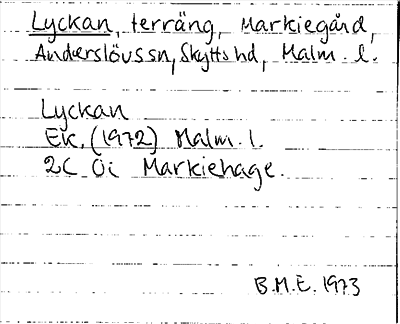 Lyckan, terräng, Markiegård,
Anderslövssn, Skytts hd, Malm. l.
Lyckan
Ek. (1972) Malm. l.
2C Öi Markiehage.
B.M.E. 1973